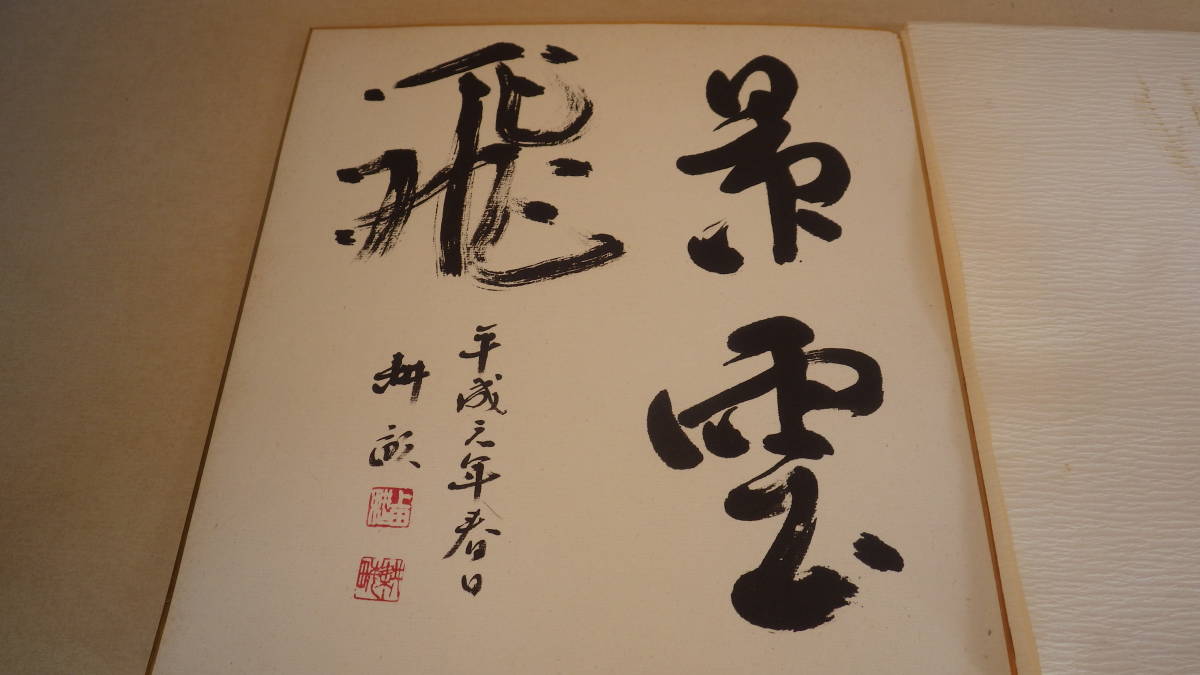 景雲
飛
平成元年春日
耕